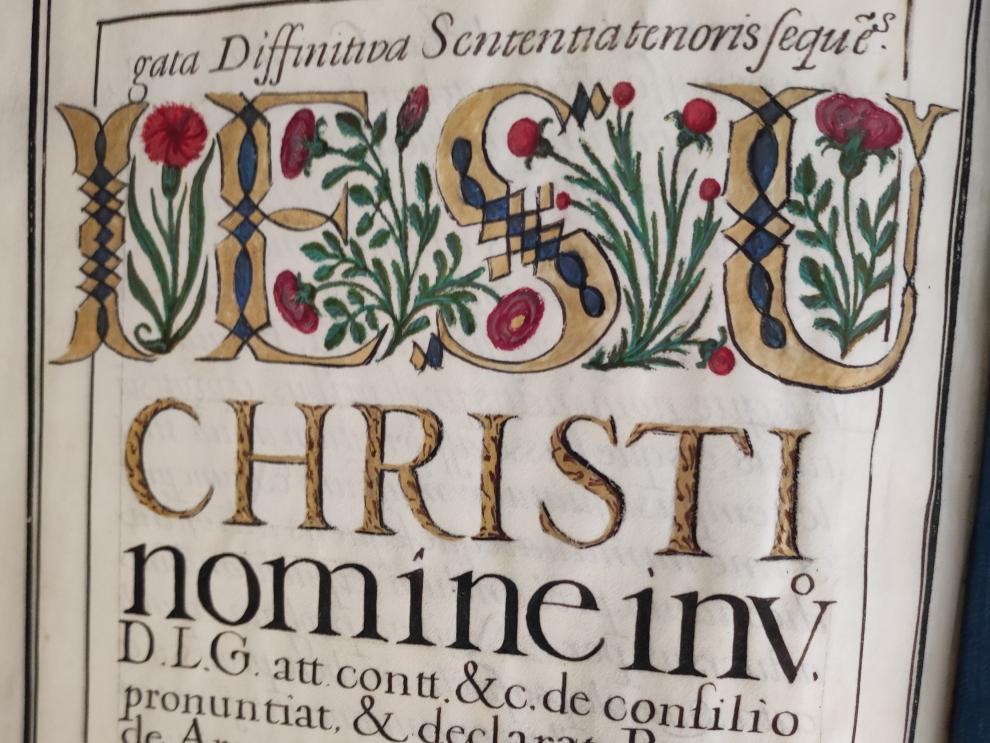 gata Diffinitiva Sententia tenoris seque͂s.
IESU
CHRISTI
nomine inv̊.
D.L.G. att. contt. &c. de consilio
pronuntiat, & declarat
de